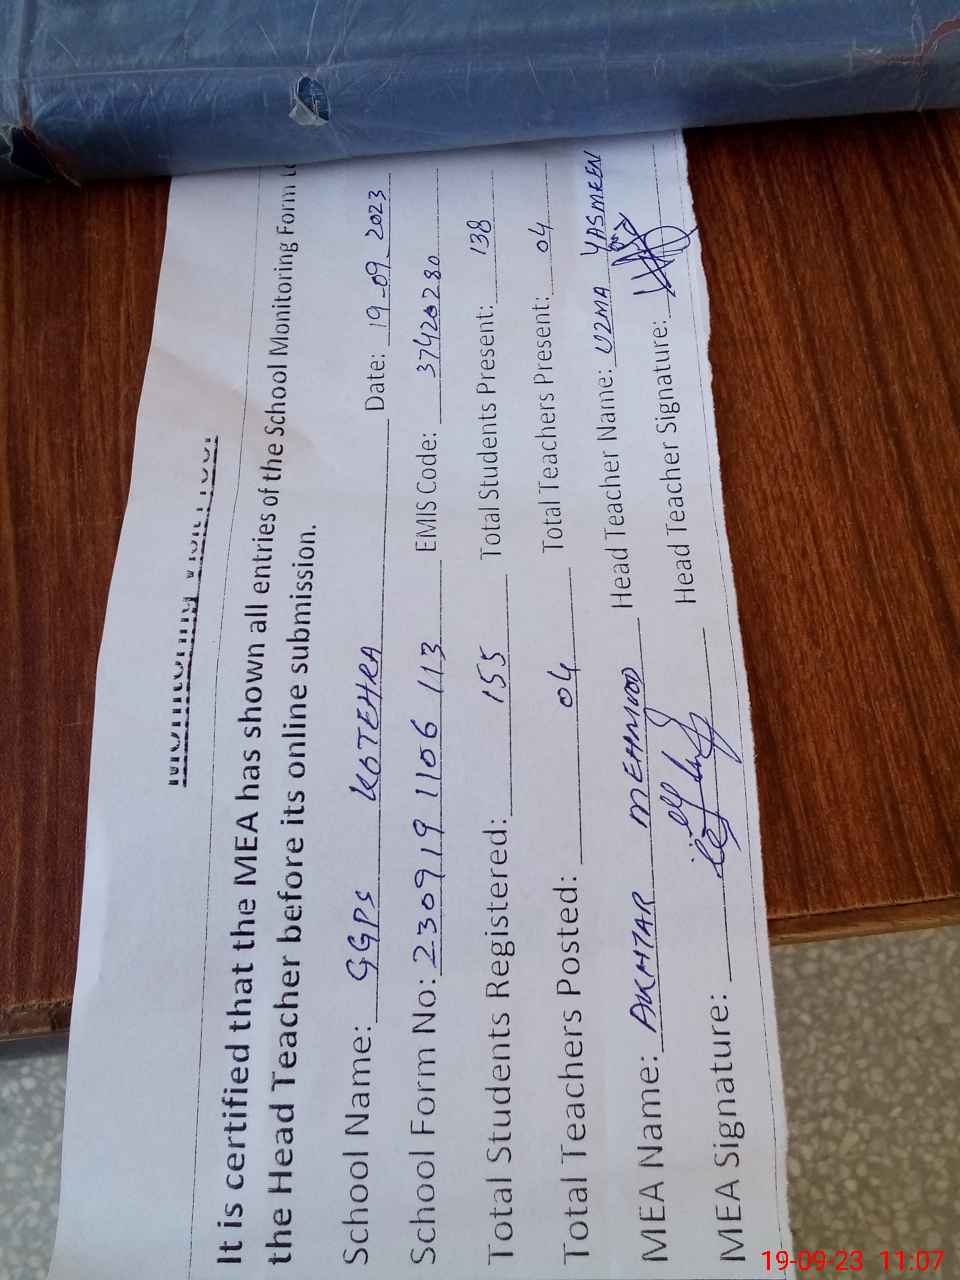 It is certified that the MEA has shown all entries of the School Monitoring Form
the Head Teacher before its online submission.
School Name: GGPS KOTEHRA Date: 19-09-2023
School Form No: 2309191106113 EMIS Code: 37420280
Total Students Registered: 155 Total Students Present: 138
Total Teachers Posted: 04 Total Teachers Present: 04
MEA Name: AKHTAR MEHMOOD Head Teacher Name: UZMA YASMEEN
MEA Signature: Head Teacher Signature:
19-09-23 11:07